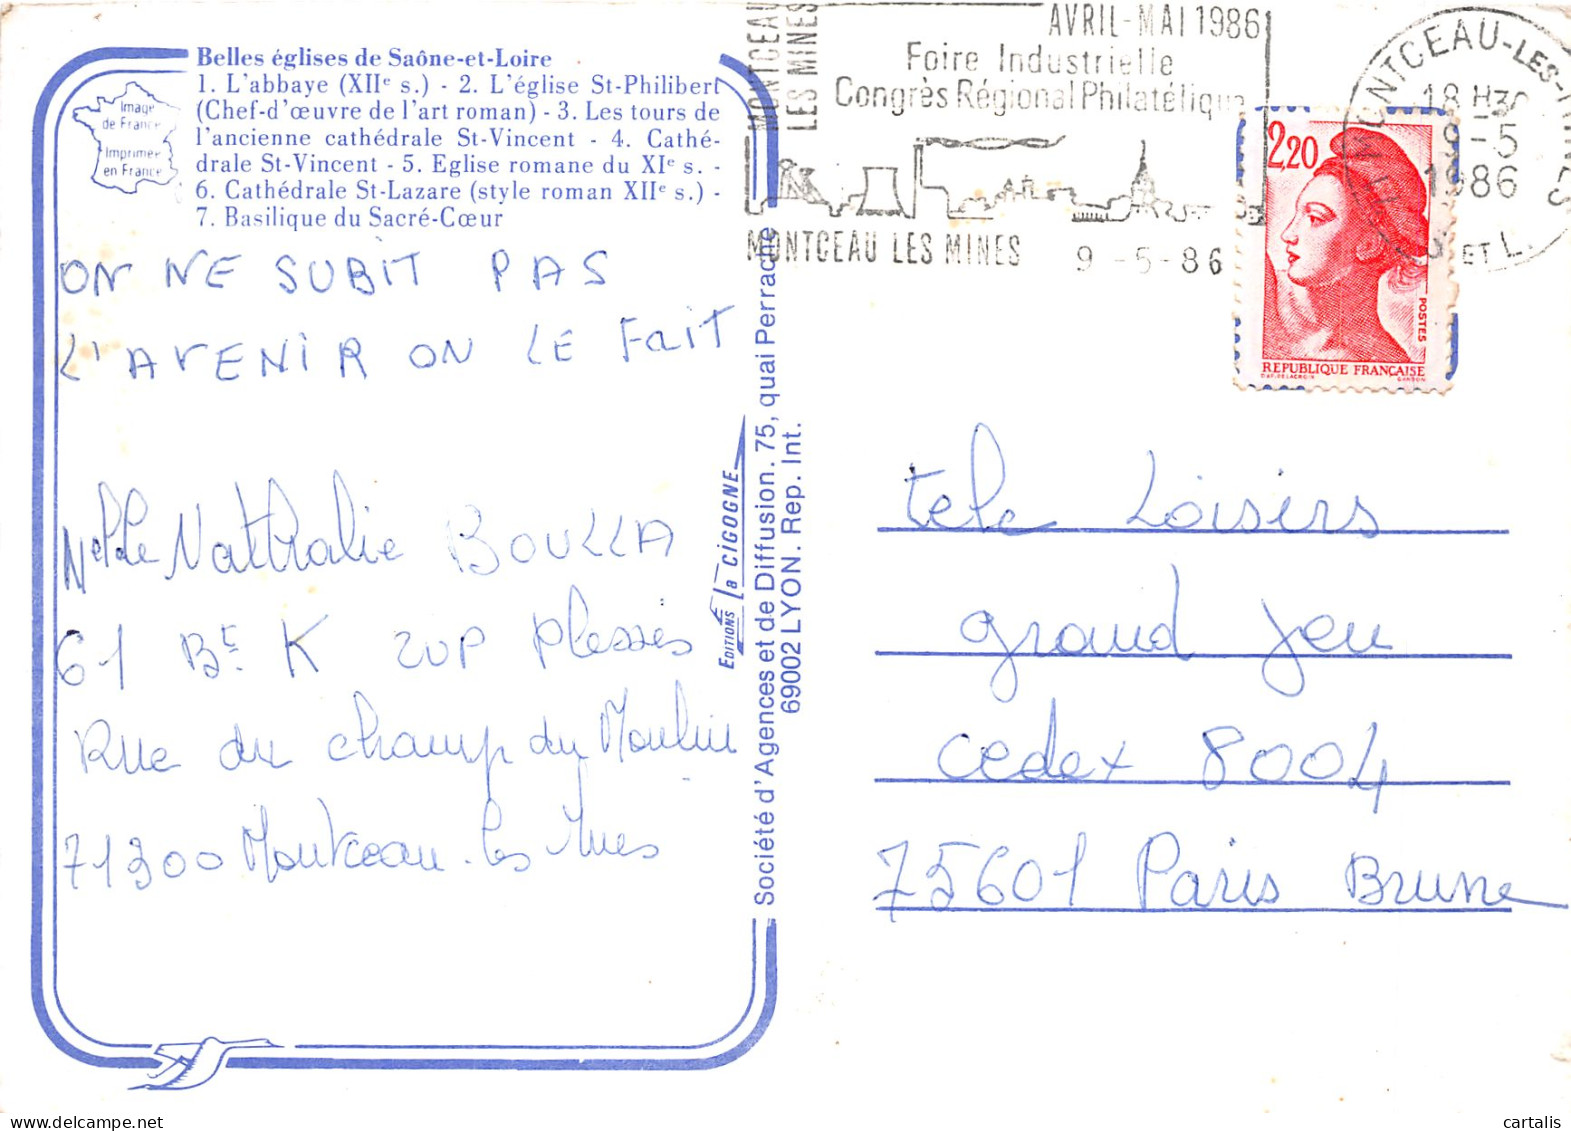 Belles églises de Saône-et-Loire
1. L'abbaye (XIIe s.) - 2. L'église St-Philibert
(Chef-d'œuvre de l'art roman) - 3. Les tours de
l'ancienne cathédrale St-Vincent - 4. Cathé-
drale St-Vincent - 5. Eglise romane du XIe s. -
6. Cathédrale St-Lazare (style roman XIIe s.) -
7. Basilique du Sacré-Cœur
Image
de France
Imprimée
en France
ON NE SUBIT PAS
L'AVENIR ON LE FaiT
Melle Nathalie BOULLA
61 Bt K ZUP Plessis
Rue du champ du Moulin
71300 Montceau-les Mines
EDITIONS la CIGOGNE
Société d'Agences et de Diffusion. 75, quai Perrache
69002 LYON. Rep. Int.
MONTCEAU
LES MINES
AVRIL-MAI 1986
Foire Industrielle
Congrès Régional Philatélique
MONTCEAU LES MINES 9-5-86
MONTCEAU-LES-MINES
18 H30
9-5
1986
S. ET L.
2,20
POSTES
REPUBLIQUE FRANÇAISE
D'AP. DELACROIX GANDON
tele Loisirs
grand jeu
cedex 8004
75601 Paris Brune
cartalis